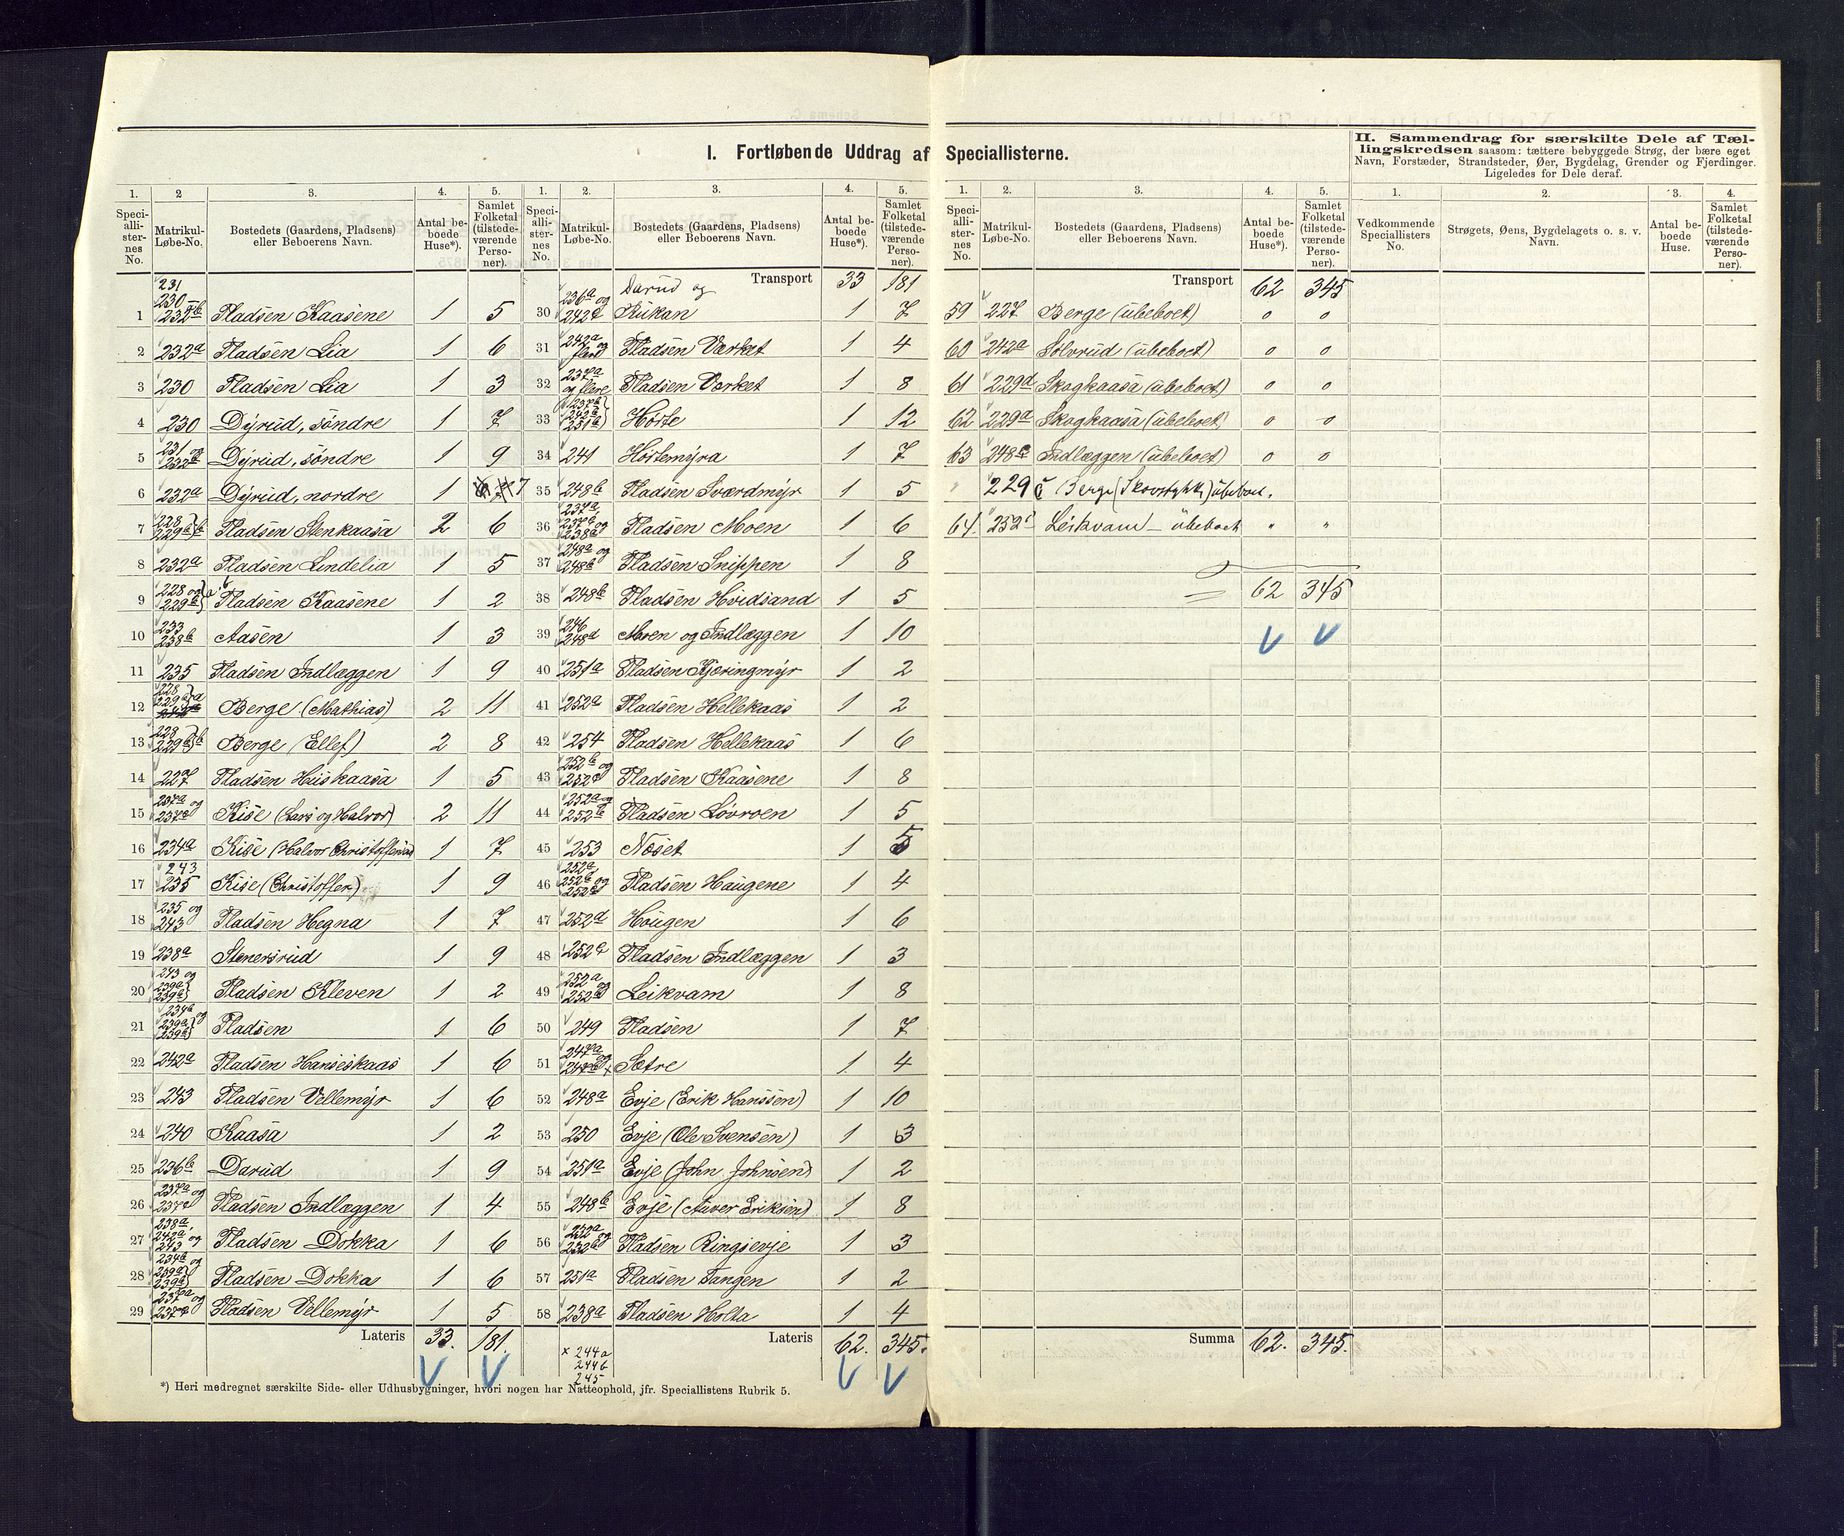 I. Fortløbende Uddrag af Speciallisterne.
II. Sammendrag for særskilte Dele af Tællingskredsen saasom: tættere bebyggede Strøg, der bære eget Navn, Forstæder, Strandsteder, Øer, Bygdelag, Grender og Fjerdinger. Ligeledes for Dele deraf.
1. 2 3. 4. 5.
Speciallisternes No. Matrikul-Løbe-No. Bostedets (Gaardens, Pladsens) eller Beboerens Navn. Antal beboede Huse*). Samlet Folketal (tilstedeværende Personer).
231
1 230 232b Pladsen Kaasene 1 5
2 232a Pladsen Lia 1 6
3 230 Pladsen Lia 1 3
4 230 Dyrud, søndre 1 7
5 231 og 232b Dyrud, søndre 1 9
6 232a Dyrud, nordre 1 7
7 228 229b}b Pladsen Stenkaasa 2 6
8 232a Pladsen Lindelia 1 5
9 228 og 229b} Pladsen Kaasene 1 2
10 233 238b Aasen 1 3
11 235 Pladsen Indlæggen 1 9
12 228 229a}a Berge (Mathias) 2 11
13 228 229b}b Berge (Ellef) 2 8
14 227 Pladsen Huskaasa 1 5
15 237a og 237c Kise (Lars og Halvor) 2 11
16 234a Kise (Halvor Christoffersen) 1 7
17 243 235 Kise (Christoffer) 1 9
18 235 og 243 Pladsen Hegna 1 7
19 238a Stenersrud 1 9
20 243 og 239a 239b} Pladsen Kleven 1 2
21 234b og 239a 239b} Pladsen 1 6
22 242a Pladsen Hanseskaas 1 6
23 243 Pladsen Vellemyr 1 6
24 240 Kaasa 1 2
25 236b Darud 1 9
26 237a og 237c Pladsen Indlæggen 1 4
27 238a, 242a og 243 Pladsen Dokka 1 6
28 234b og 239a 239b} Pladsen Dokka 1 6
29 237a og 237c Pladsen Vellemyr 1 5
Lateris 33. 181.
*) Heri medregnet særskilte Side- eller Udhusbygninger, hvori nogen har Natteophold, jfr. Speciallistens Rubrik 5.
1. 2. 3. 4. 5.
Speciallisternes No. Matrikul-Løbe-No. Bostedets (Gaardens, Pladsens) eller Beboerens Navn. Antal beboede Huse*). Samlet Folketal (tilstedeværende Personer).
Transport 33 181
30 236a og 242d Darud og Rukan 1 7
31 242a og flere Pladsen Værket 1 4
32 237a og flere Pladsen Værket 1 8
33 237b 242b 251b} Hørte 1 12
34 241 Hørtemyra 1 7
35 248b Pladsen Sværdmyr 1 5
36 237a 237c og 238a Pladsen Moen 1 6
37 248a og 248b Pladsen Snippen 1 8
38 248b Pladsen Hvidsand 1 5
39 246 248d Moen og Indlæggen 1 10
40 251a Pladsen Kjøringmyr 1 2
41 252a Pladsen Hellekaas 1 2
42 254 Pladsen Hellekaas 1 6
43 252b og 252c Pladsen Kaasene 1 8
44 252a og 252b Pladsen Løvroen 1 5
45 253 Nøset 1 5
46 252a 252b og 252c Pladsen Haugene 1 4
47 252d Hougen 1 6
48 252c Pladsen Indlæggen 1 3
49 252a og 252b Leikvam 1 8
50 249 Pladsen 1 7
51 247a og 247b x Sætre 1 4
52 248a Evje (Erik Hanssen) 1 10
53 250 Evje (Ole Svensen) 1 3
54 251a Evje (John Johnsen) 1 2
55 248b Evje (Aaver Eriksen) 1 8
56 252a og 252b Pladsen Ringsevje 1 3
57 251a Pladsen Tangen 1 2
58 238a Pladsen Holta 1 4
Lateris 62. 345.
x 244a
244b
245
1. 2. 3. 4. 5.
Speciallisternes No. Matrikul-Løbe-No. Bostedets (Gaardens, Pladsens) eller Beboerens Navn. Antal beboede Huse*). Samlet Folketal (tilstedeværende Personer).
Transport 62 345
59 227 Berge (ubeboet) 0 0
60 242a Sølvrud (ubeboet) 0 0
61 229d Skogkaasa (ubeboet) 0 0
62 229a Skogkaasa (ubeboet) 0 0
63 248c Indlæggen (ubeboet) 0 0
" 229c Berge (Skovstykke) ubeboet.
64. 252c Leikvam – ubeboet " "
= 62 345
Summa 62. 345.
1. 2. 3. 4.
Vedkommende Speciallisters No. Strøgets, Øens, Bygdelagets o. s. v. Navn. Antal beboede Huse. Samlet Folketal (tilstedeværende Personer).